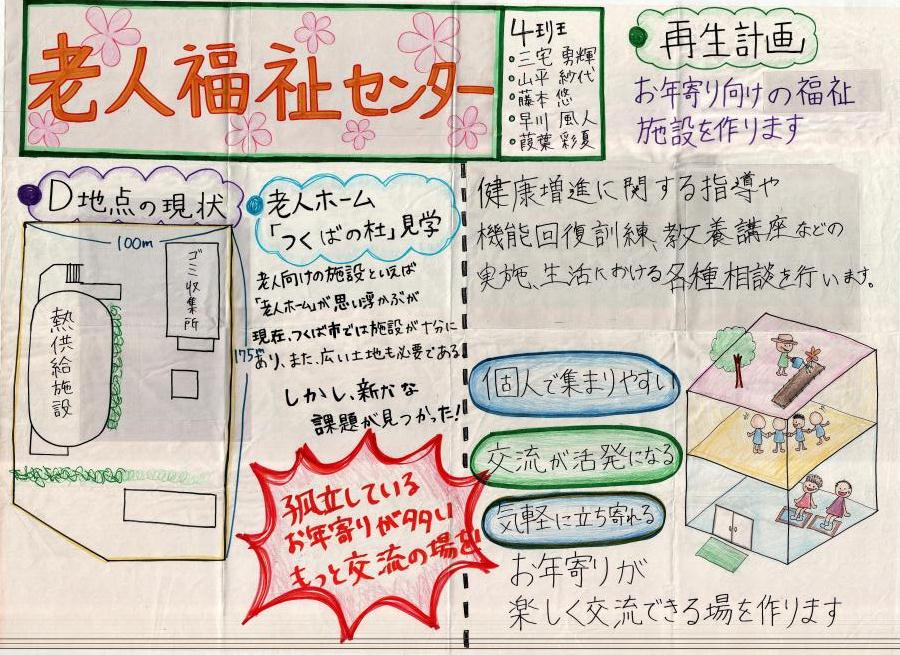 老人福祉センター
4班
・三宅 勇輝
・山平 紗代
・藤本 悠
・早川 風人
・葭葉 彩夏
再生計画
お年寄り向けの福祉
施設を作ります
D地点の現状
100m
ゴミ収集所
熱供給施設
175m
老人ホーム
「つくばの杜」見学
老人向けの施設といえば
「老人ホーム」が思い浮かぶが
現在、つくば市では施設が十分に
あり、また、広い土地も必要である。
しかし、新たな
課題が見つかった!
孤立している
お年寄りが多い
もっと交流の場を
健康増進に関する指導や
機能回復訓練、教養講座などの
実施、生活における各種相談を行います。
個人で集まりやすい
交流が活発になる
気軽に立ち寄れる
お年寄りが
楽しく交流できる場を作ります